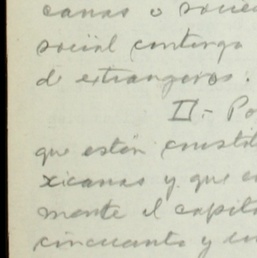 canas o socie
social contenga
de extrangeros.
II.- Po
que estén constit
xicanas y que e
mente el capita
cincuenta y un